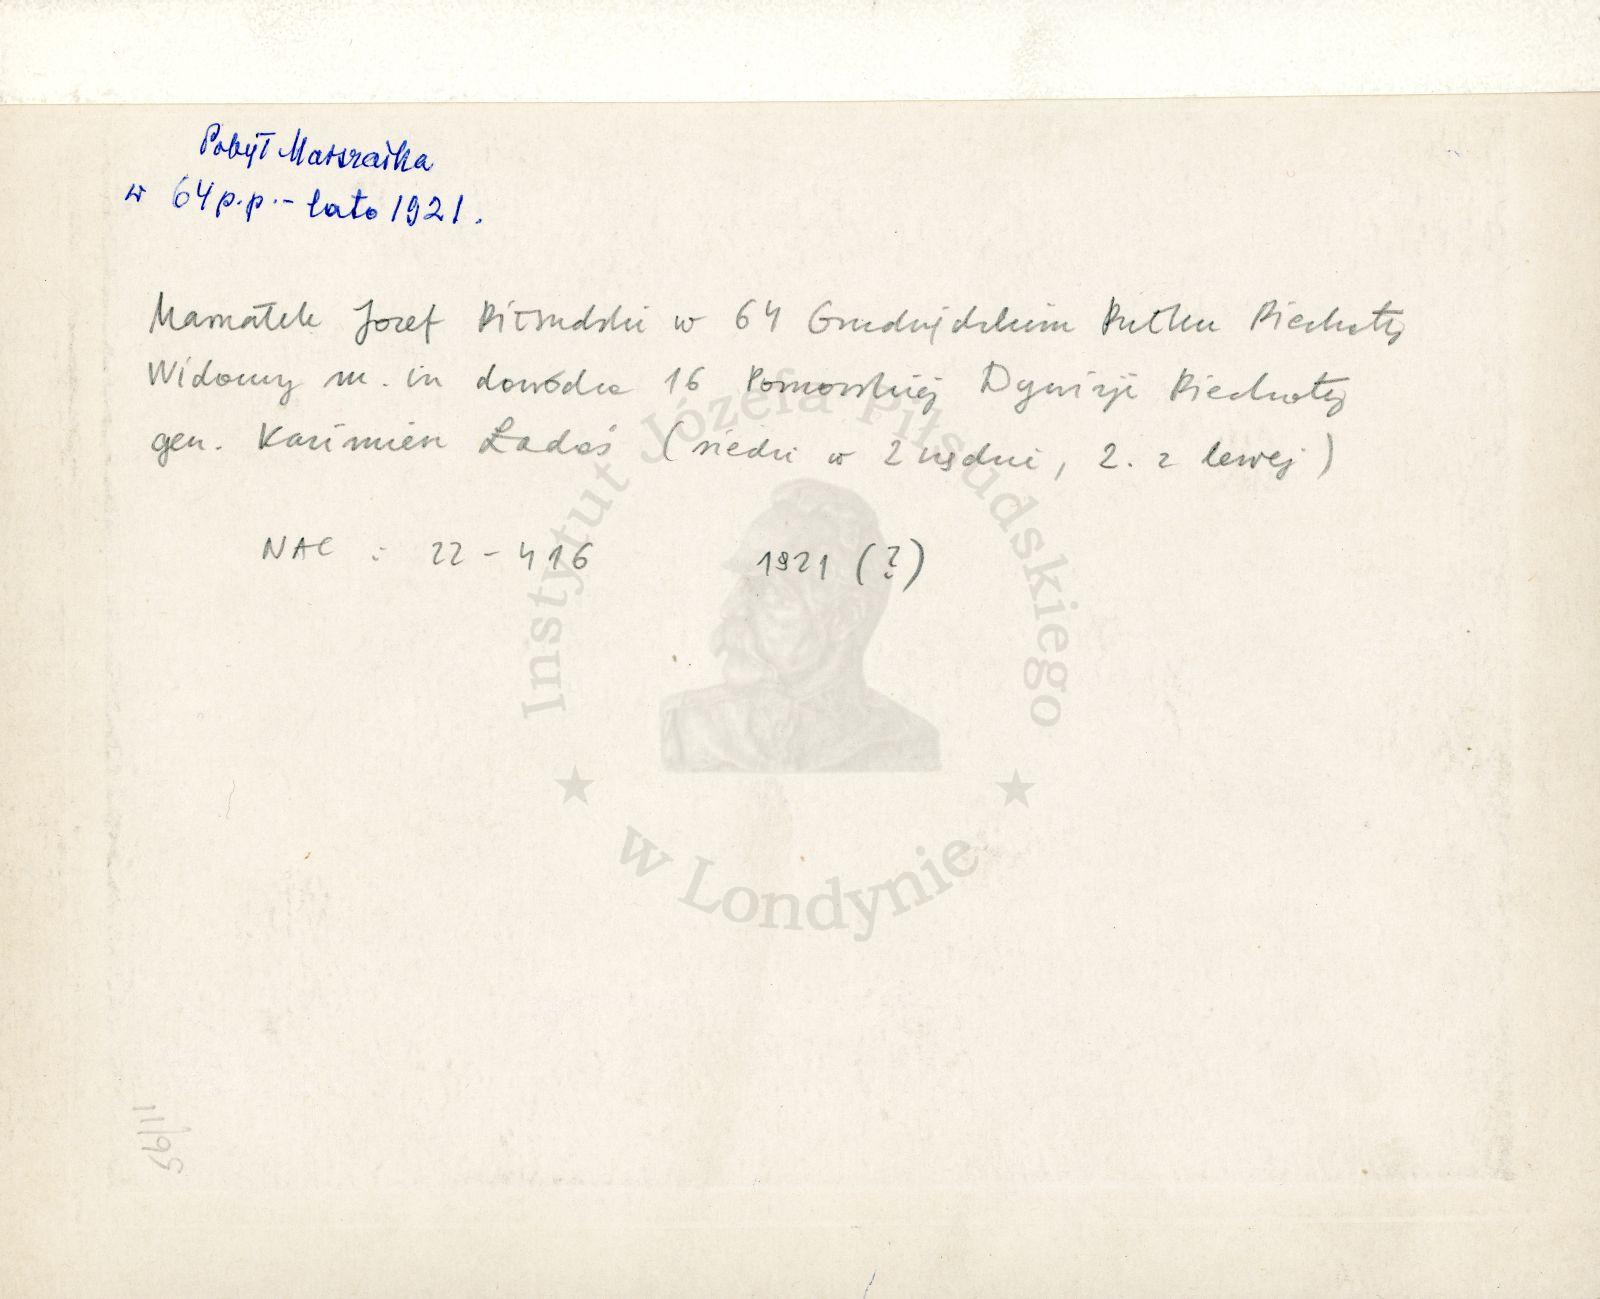 Pobyt Marszałka
w 64 p.p. - lato 1921.
Marszałek Józef Piłsudski w 64 Grudziądzkim Pułku Piechoty
Widoczny m. in dowódca 16 Pomorskiej Dywizji Piechoty
gen. Kazimierz Ładoś (siedzi w 2 rzędzie, 2. z lewej)
NAC : 22-416 1921 (?)
Instytut Józefa Piłsudskiego
w Londynie